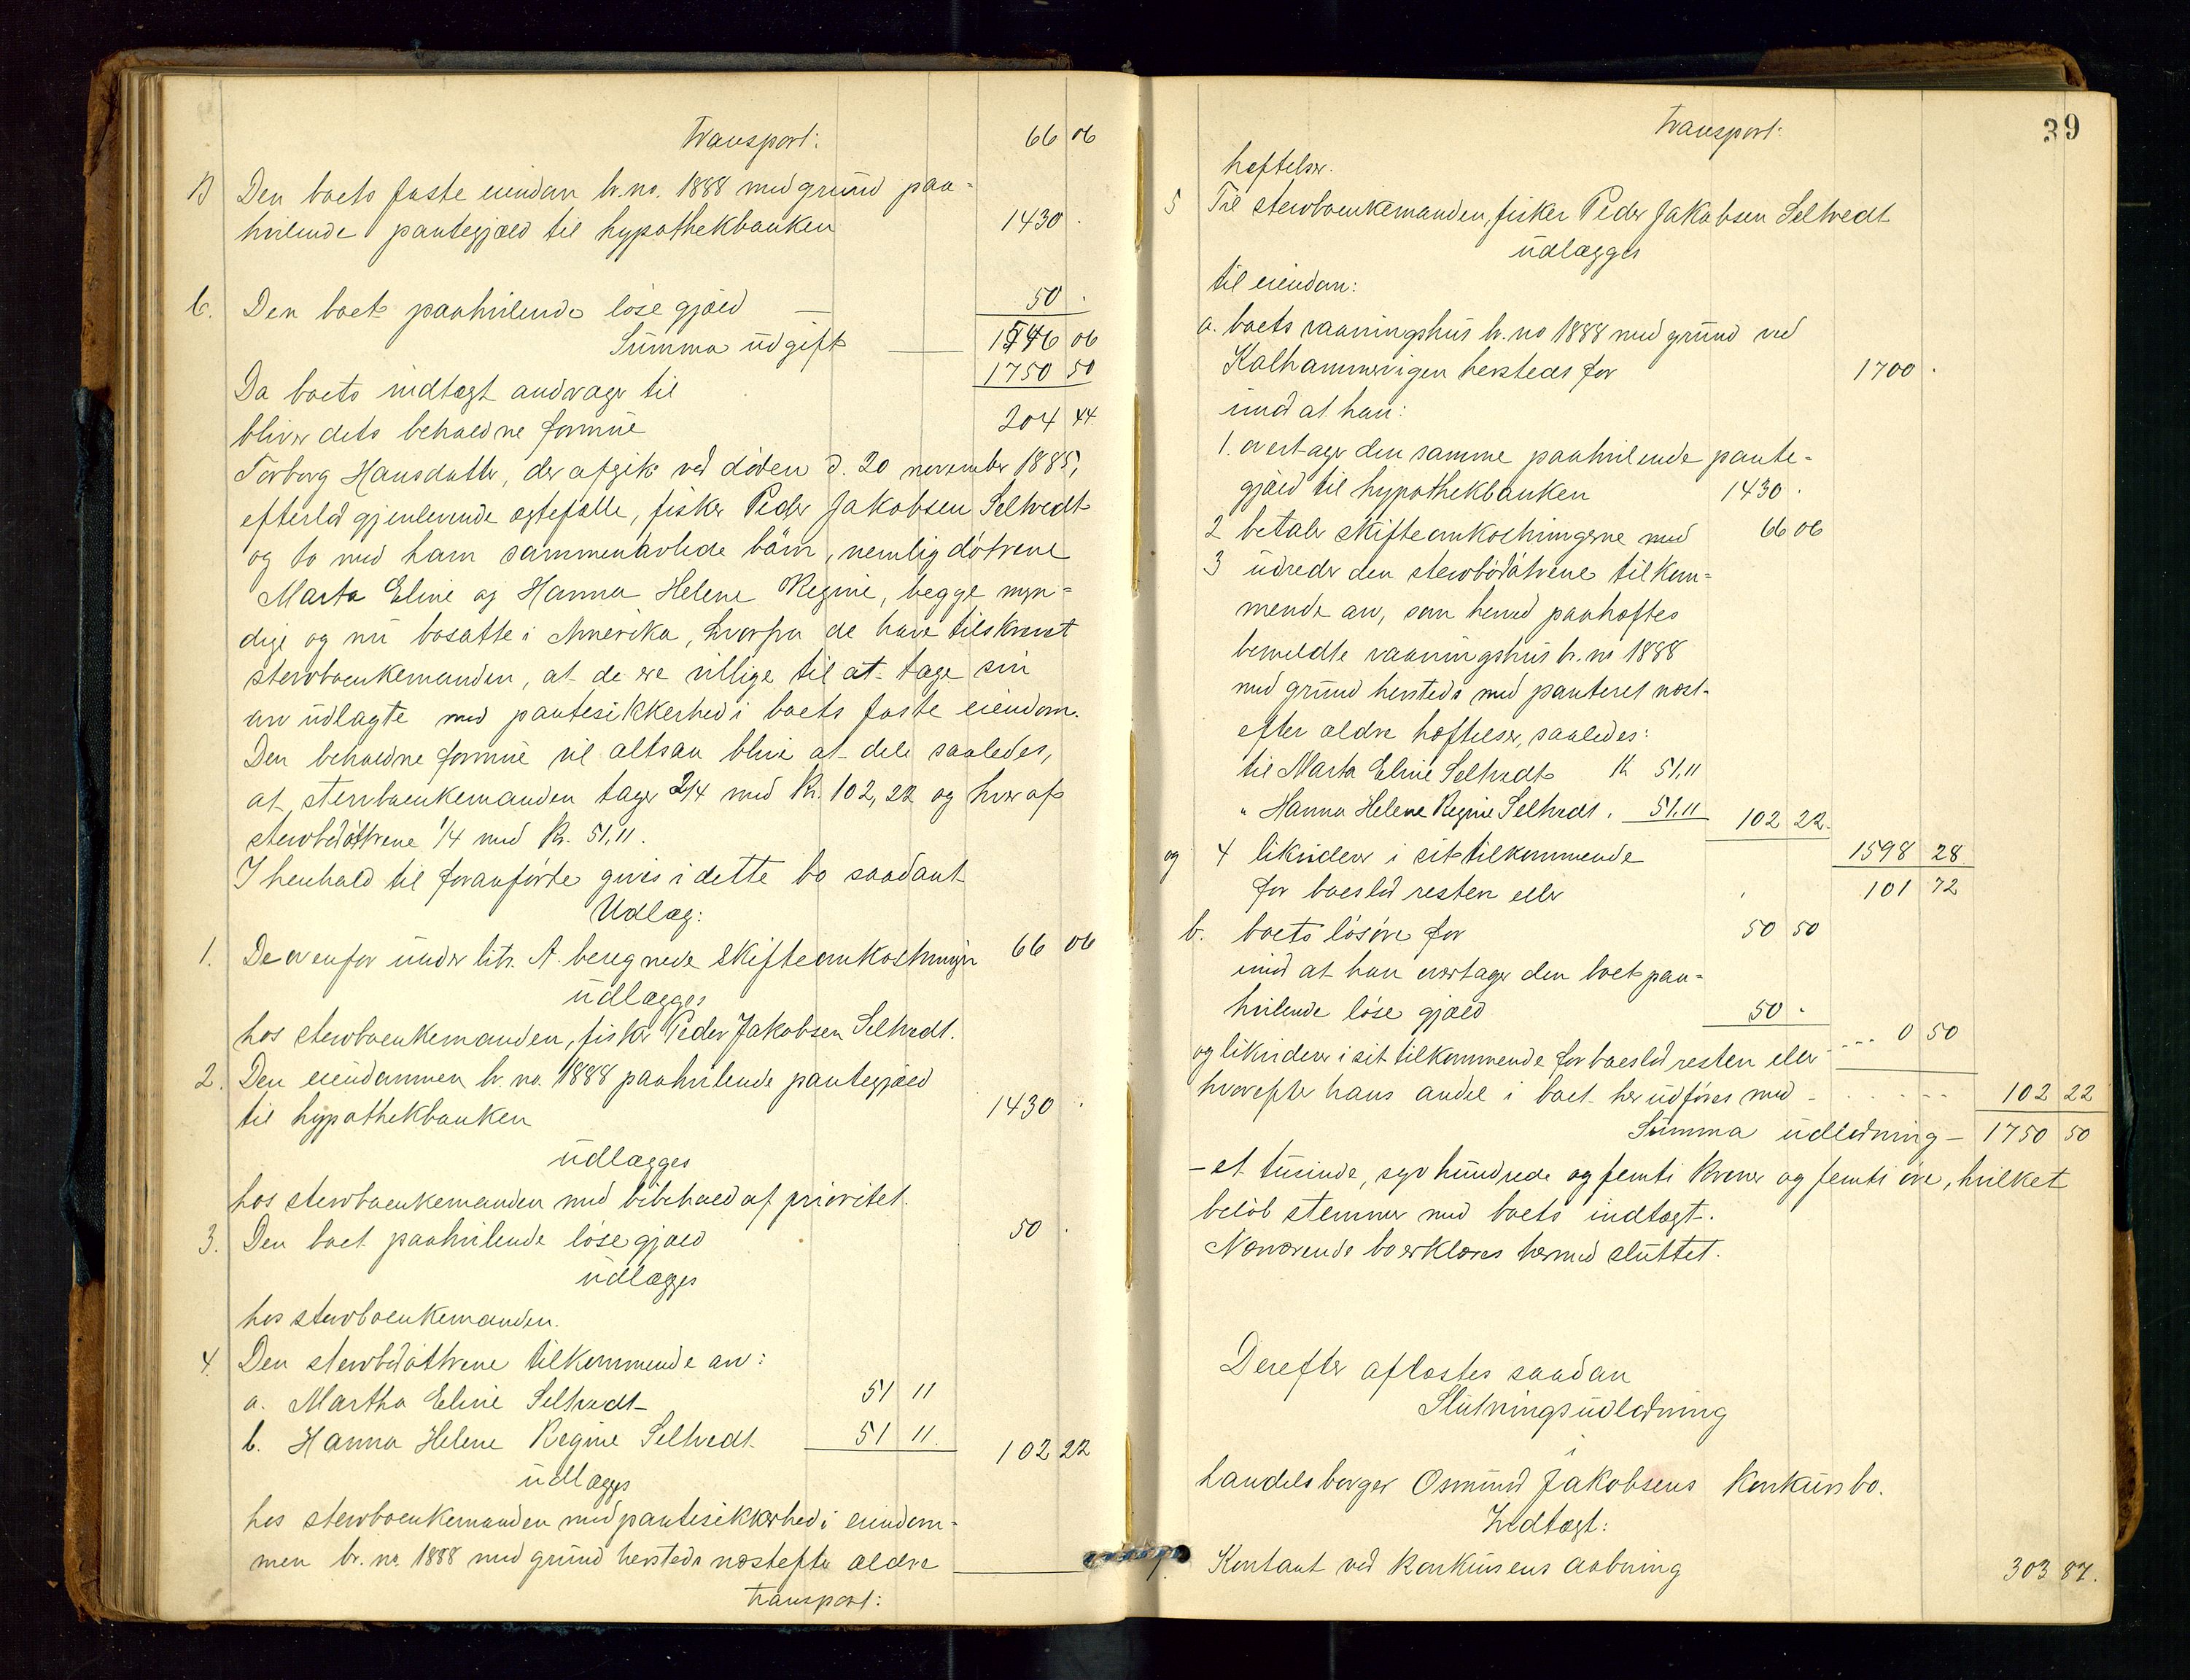 Transport: 66 06
B Den boets faste eiendom br. no. 1888 med grund paa-
hvilende pantegjæld til hypothekbanken 1430 .
C. Den boet paahvilende löse gjæld — 50 .
Summa udgift — 1546 06
Da boets indtægt andrager til 1750 50
bliver dets beholdne formue 204 44.
Torborg Hansdatter, der afgik ved döden d. 20 november 1885,
efterlod gjenlevende ægtefælle, fisker Peder Jakobsen Seltvedt
og to med ham sammenavlede börn, nemlig dötrene
Marta Eline og Hanna Helene Regine, begge myn-
dige og nu bosatte i Amerika, hvorfra de have tilskrevet
stervboenkemanden, at de ere villige til at tage sin
arv udlagte med pantesikkerhed i boets faste eiendom.
Den beholdne formue vil altsaa blive at dele saaledes,
at stervboenkemanden tager 2/4 med Kr. 102,22 og hver af
stervbodötrene 1/4 med Kr. 51,11.
I henhold til foranförte gives i dette bo saadant
Udlæg:
1. De ovenfor under litr. A. beregnede skifteomkostninger 66 06
udlægges
hos stervboenkemanden, fisker Peder Jakobsen Seltvedt.
2. Den eiendommen br. no. 1888 paahvilende pantegjæld
til hypothekbanken 1430 .
udlægges
hos stervboenkemanden med bibehold af prioritet.
3. Den boet paahvilende löse gjæld 50 .
udlægges
hos stervboenkemanden.
4. Den stervbodötrene tilkommende arv:
a. Martha Eline Seltvedt 51 11
b. Hanna Helene Regine Seltvedt 51 11. 102 22
udlægges
hos stervboenkemanden med pantesikkerhed i eiendom-
men br. no. 1888 med grund hersteds næstefter ældre
Transport:
39
Transport:
heftelser.
5 Til stervboenkemanden, fisker Peder Jakobsen Seltvedt
udlægges
til eiendom:
a. boets vaaningshus br. no 1888 med grund ved
Kalhammervigen hersteds for 1700 .
imod at han:
1. overtager den samme paahvilende pante-
gjæld til hypothekbanken 1430 .
2 betaler skifteomkostningerne med 66 06
3 udreder den stervbodötrene tilkom-
mende arv, som herved paaheftes
bemeldte vaaningshus br. no 1888
med grund hersteds med panteret næst-
efter ældre heftelser, saaledes:
til Marta Eline Seltvedt Kr 51,11
" Hanna Helene Regine Seltvedt . 51,11 102 22.
1598 28
og 4 likviderer i sit tilkommende
for boeslod resten eller 101 72
b. boets lösöre for 50 50
imod at han overtager den boet paa-
hvilende löse gjæld 50 .
og likviderer i sit tilkommende for boeslod resten eller ... 0 50
hvorefter hans andel i boet her udföres med - . . . . 102 22
Summa udlodning - 1750 50
- et tusinde, syv hundrede og femti Kroner og femti öre, hvilket
belöb stemmer med boets indtægt.
Nærværende bo erklæres hermed sluttet.
Derefter aflæstes saadan
Slutningsudlodning
i
handelsborger Osmund Jakobsens Konkursbo.
Indtægt:
1. Kontant ved Konkursens aabning 303 87.